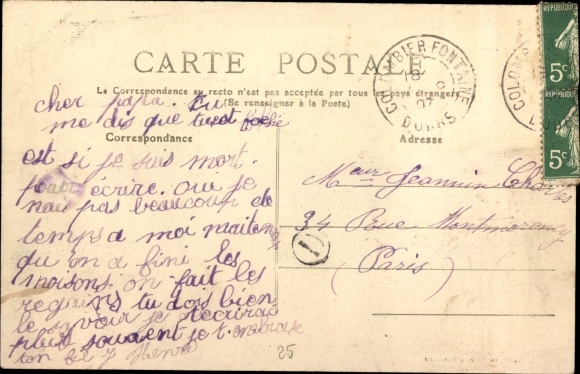 CARTE POSTALE
La Correspondance au recto n'est pas acceptée par tous les pays étrangers
(Se renseigner à la Poste)
Correspondance
Adresse
cher papa. tu
me dis que tu
est si je suis mort.
pour écrire. oui je
nai pas beaucoup de
temps a moi maiten
qu on a fini les
moisons on fait les
regains tu dois bien
le savoir je técrirai
plus souvent je t'embrasse
ton
Mr Jeannin Charles
34 Rue Montmorency
(Paris)
COLOMBIER FONTAINE
18
07
DOUBS
COLOMB
RÉPUBLIQUE
5c
RÉPUBLIQUE
5c
1
25